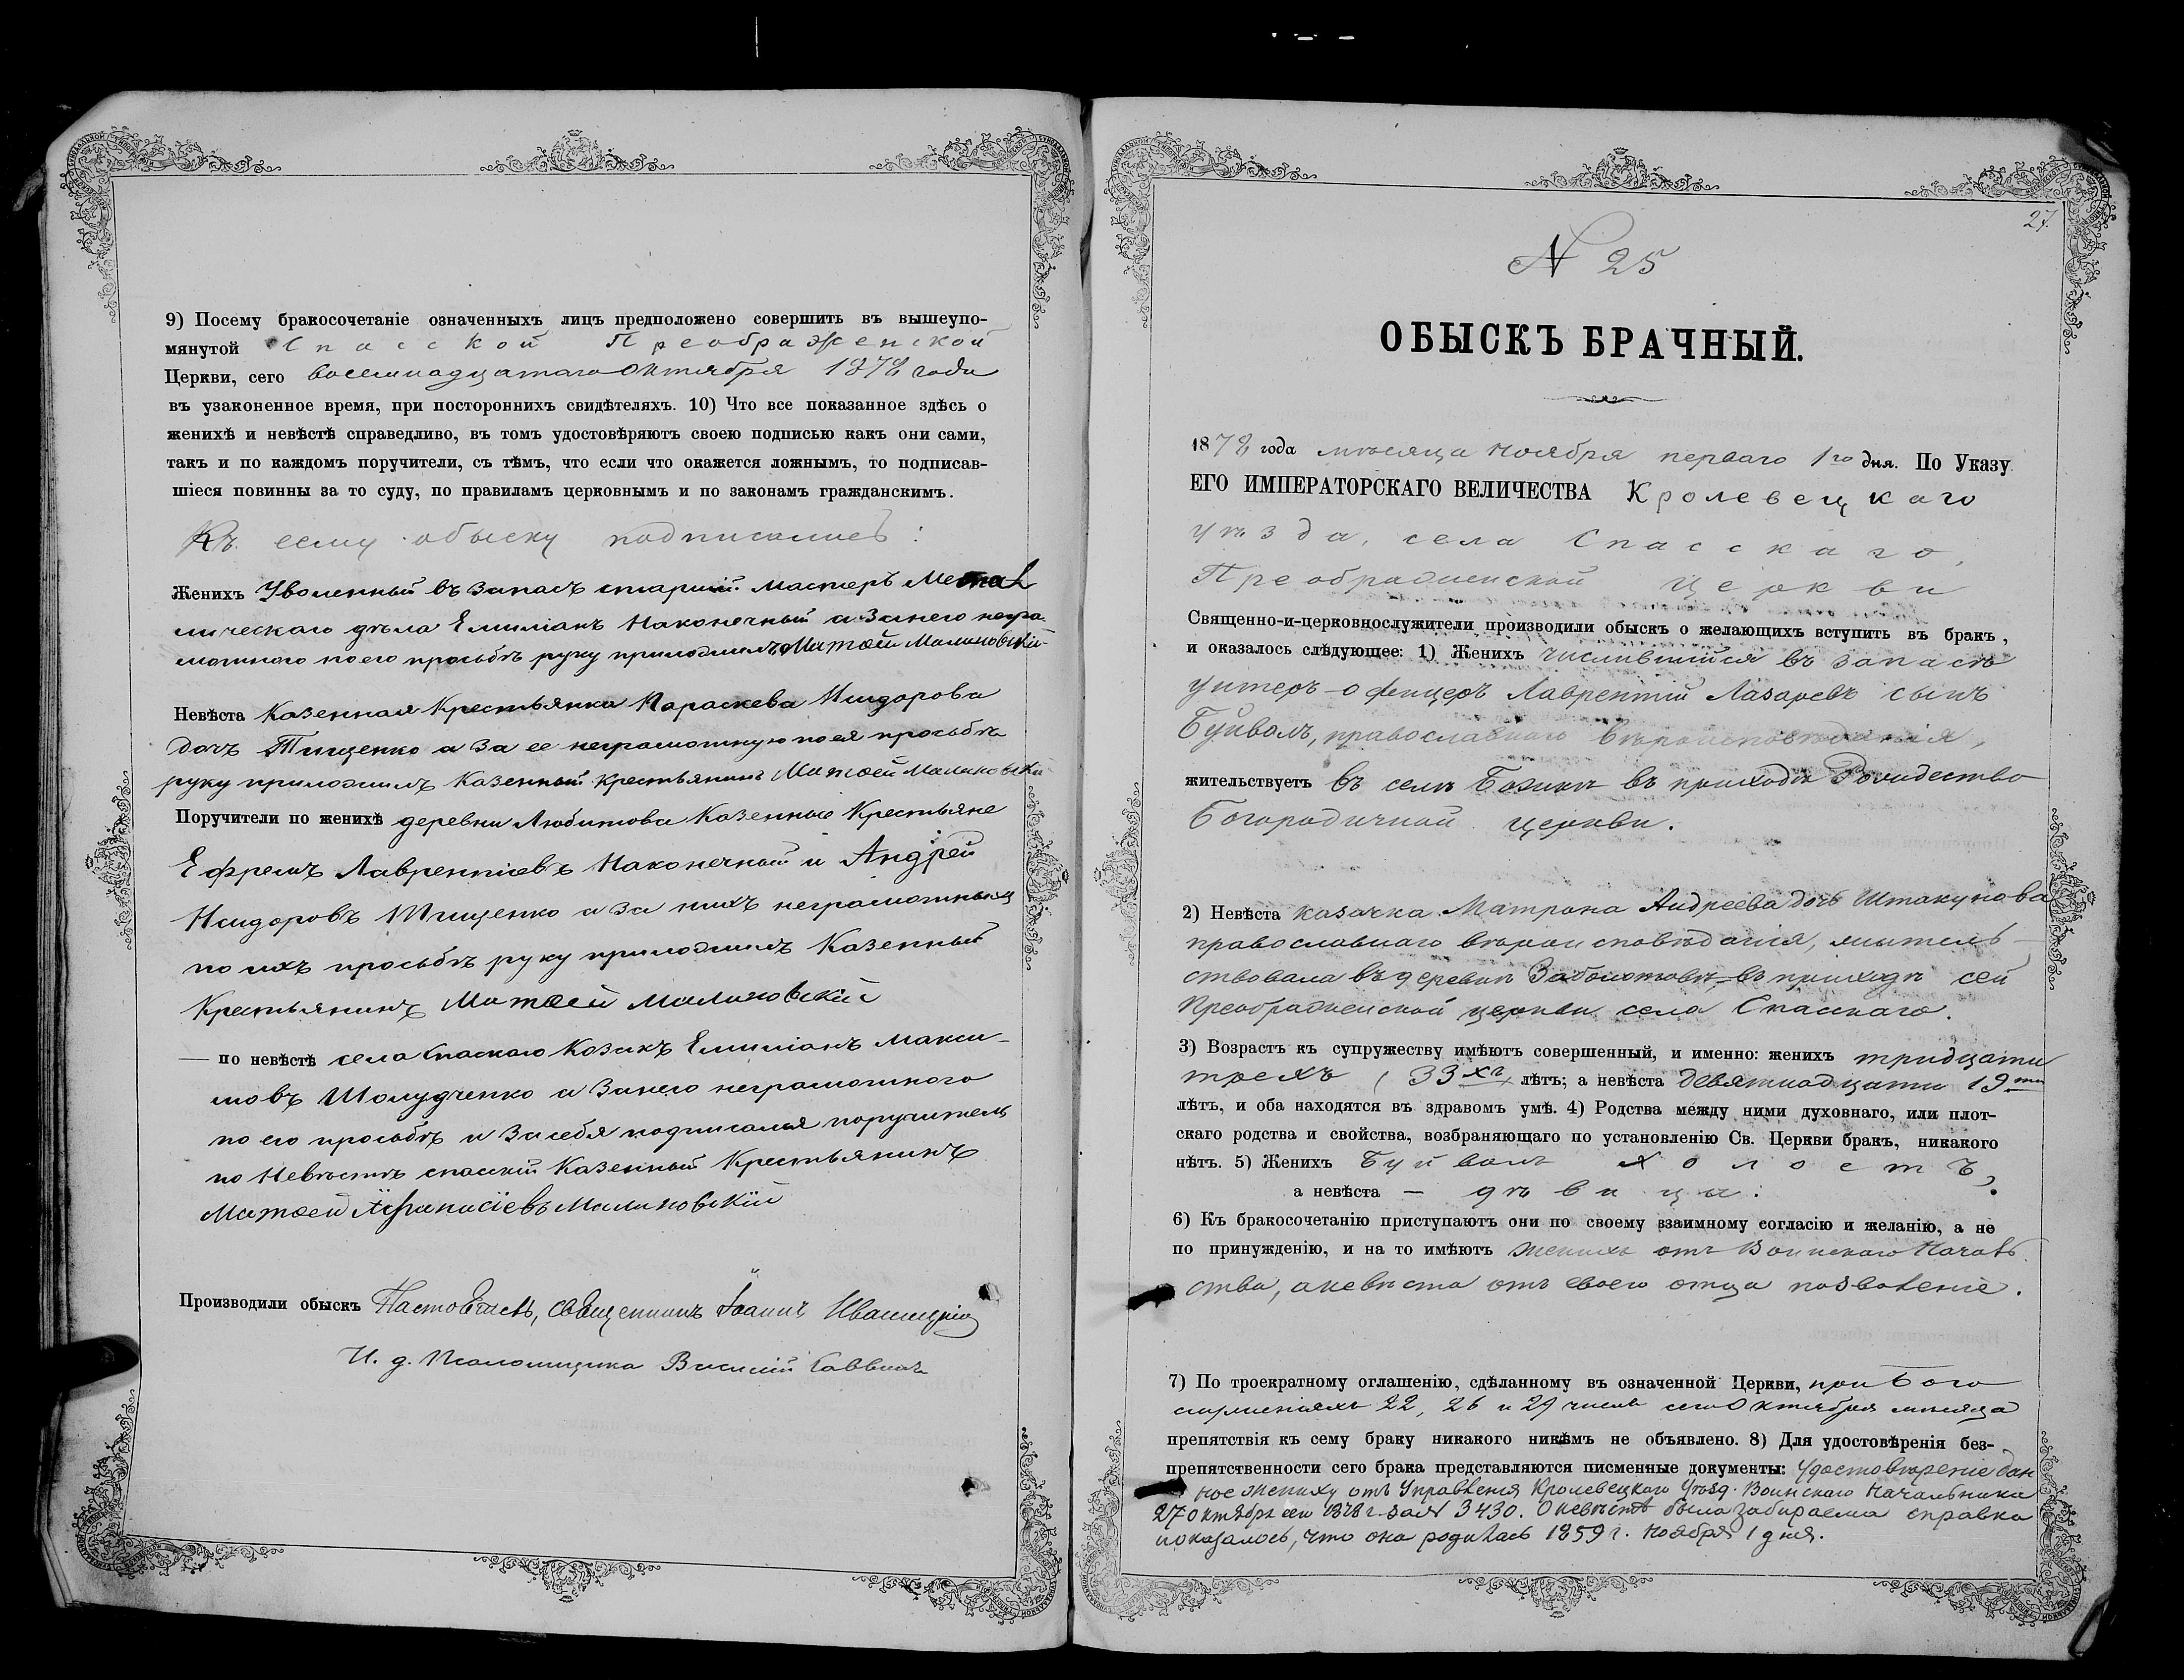 9) Посему бракосочетаніе означенныхъ лицъ предположено совершить въ вышеупо-
мянутой Спасской Преображенской
Церкви, сего восемнадцатаго Октября 1878 года
въ узаконенное время, при постороннихъ свидѣтеляхъ. 10) Что все показанное здѣсь о
женихѣ и невѣстѣ справедливо, въ томъ удостовѣряютъ своею подписью какъ они сами,
такъ и по каждомъ поручители, съ тѣмъ, что если что окажется ложнымъ, то подписав-
шіеся повинны за то суду, по правиламъ церковнымъ и по законамъ гражданскимъ.
Къ сему обыску подписались:
Женихъ Уволенный въ Запасъ старшій мастеръ
лическаго дѣла Емиліанъ Наконечный а За него негра-
мотнаго по его просьбѣ руку приложилъ Матѳей Малиновскій
Невѣста Казенная Крестьянка Параскева Исидорова
дочь Тищенко а За ее неграмотную по ея просьбѣ
руку приложилъ Казенный Крестьянинъ Матѳей Малиновскій
Поручители по женихѣ деревни Любитова Казенные Крестьяне
Ефремъ Лаврентіевъ Наконечный и Андрей
Исидоровъ Тищенко а За нихъ неграмотныхъ
по ихъ просьбѣ руку приложилъ Казенный
Крестьянинъ Матѳей Малиновскій
— по невѣстѣ села Спаскаго Козакъ Емиліанъ Макси-
мовъ Шолудченко а За него неграмотного
по его просьбѣ и За себя подписался поручитель
по Невѣстѣ спаскій Казенный Крестьянинъ
Матѳей Афанасіевъ Малиновскій
Производили обыскъ Настоятель, священникъ Іоаннъ
И. д. Псаломщика Василій Саввичъ
27.
N 25
ОБЫСКЪ БРАЧНЫЙ.
1878 года мѣсяца Ноября перваго 1го дня. По Указу
ЕГО ИМПЕРАТОРСКАГО ВЕЛИЧЕСТВА Кролевецкаго
уѣзда, села Спасскаго,
Преображенской Церкви
Священно-и-церковнослужители производили обыскъ о желающихъ вступить въ бракъ,
и оказалось слѣдующее: 1) Женихъ числившійся въ запасѣ
унтеръ-офицеръ Лаврентій Лазаревъ сынъ
Буйволъ, православнаго вѣроисповѣданія,
жительствуетъ въ селѣ въ приходѣ Рождество
Богородичной церкви.
2) Невѣста казачка Матрона Андреева дочь Штакунова
православнаго вѣроисповѣданія, житель-
ствовала въ деревнѣ Заболотовѣ въ приходѣ сей
Преображенской церкви села Спасскаго.
3) Возрастъ къ супружеству имѣютъ совершенный, и именно: женихъ тридцати
трехъ (33хъ) лѣтъ; а невѣста девятнадцати 19ти
лѣтъ, и оба находятся въ здравомъ умѣ. 4) Родства между ними духовнаго, или плот-
скаго родства и свойства, возбраняющаго по установленію Св. Церкви бракъ, никакого
нѣтъ. 5) Женихъ Буйволъ холостъ,
а невѣста — дѣвица.
6) Къ бракосочетанію приступаютъ они по своему взаимному согласію и желанію, а не
по принужденію, и на то имѣютъ женихъ отъ Воинскаго Началь
ства, а невѣста отъ своего отца позволеніе.
7) По троекратному оглашенію, сдѣланному въ означенной Церкви, при Бого
служеніяхъ 22, 26 и 29 чиселъ сего Октября мѣсяца
препятствія къ сему браку никакого никѣмъ не объявлено. 8) Для удостовѣренія без-
препятственности сего брака представляются писменные документы: Удостовѣреніе дан
ное жениху отъ Управленія Кролевецкаго Уѣзд. Воинскаго Начальника
27 октября сего 1878 г. за N 3430. О невѣстѣ была забираема справка
и оказалось, что она родилась 1859 г. ноября 1 дня.